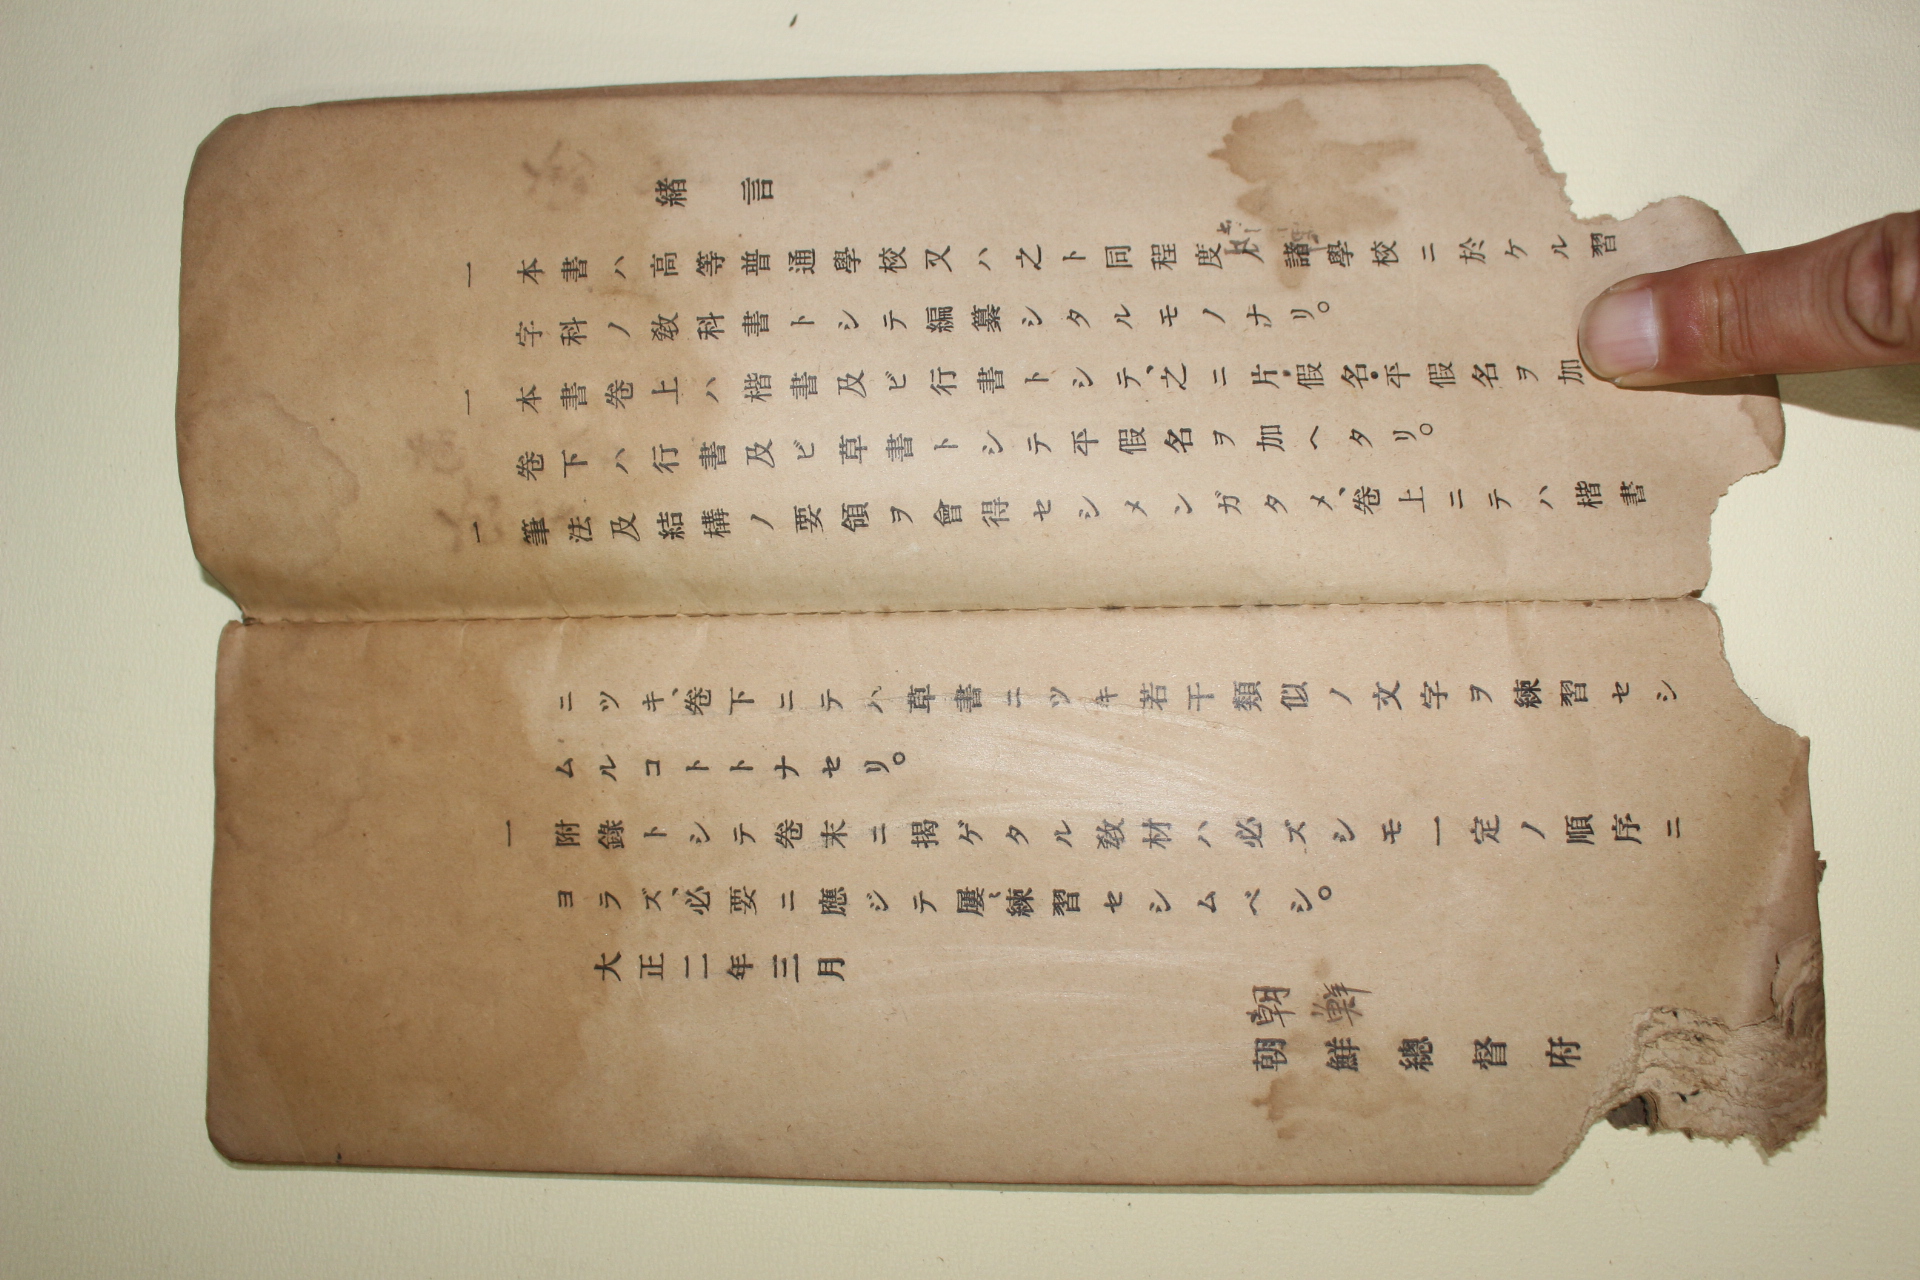 緒言
一 本書ハ高等普通學校又ハ之ト同程度ノ諸學校ニ於ケル習
字科ノ敎科書トシテ編纂シタルモノナリ。
一 本書卷上ハ楷書及ビ行書トシテ、之ニ片假名・平假名ヲ加
卷下ハ行書及ビ草書トシテ平假名ヲ加ヘタリ。
一 筆法及結構ノ要領ヲ會得セシメンガタメ、卷上ニテハ楷書
ニツキ、卷下ニテハ草書ニツキ若干類似ノ文字ヲ練習セシ
ムルコトトナセリ。
一 附錄トシテ卷末ニ揭ゲタル敎材ハ必ズシモ一定ノ順序ニ
ヨラズ、必要ニ應ジテ屢〻練習セシムベシ。
大正二年三月
朝鮮
朝鮮總督府